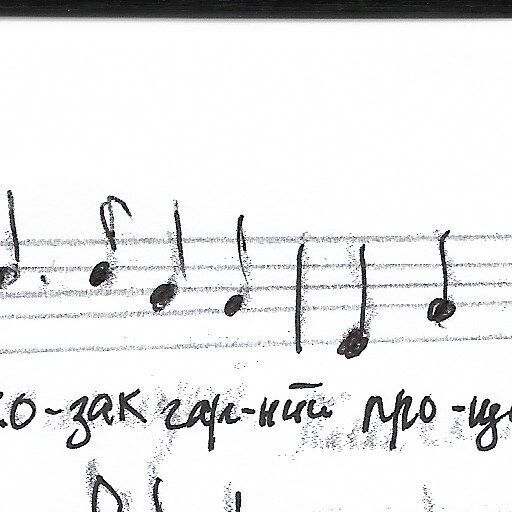 ко-зак гар-ний про-що